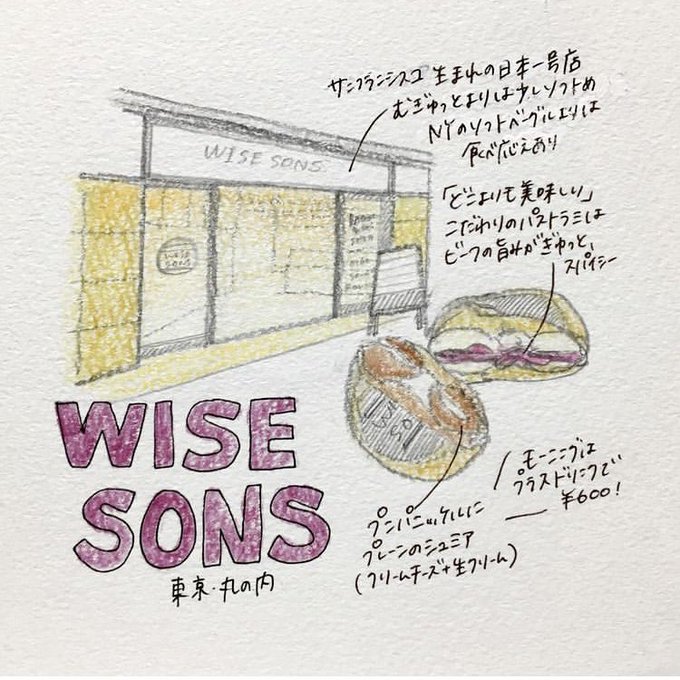 サンフランシスコ生まれの日本一号店
むぎゅっとよりは少しソフトめ
NYのソフトベーグルよりは
食べ応えあり
WISE SONS
WISE
SONS
「どこよりも美味しい」
こだわりのパストラミは
ビーフの旨みがぎゅっと、
スパイシー
WISE
SO
WISE
SONS
東京・丸の内
モーニングは
プラスドリンクで
¥600!
プンパニッケルに
プレーンのシュミア
(クリームチーズ+生クリーム)